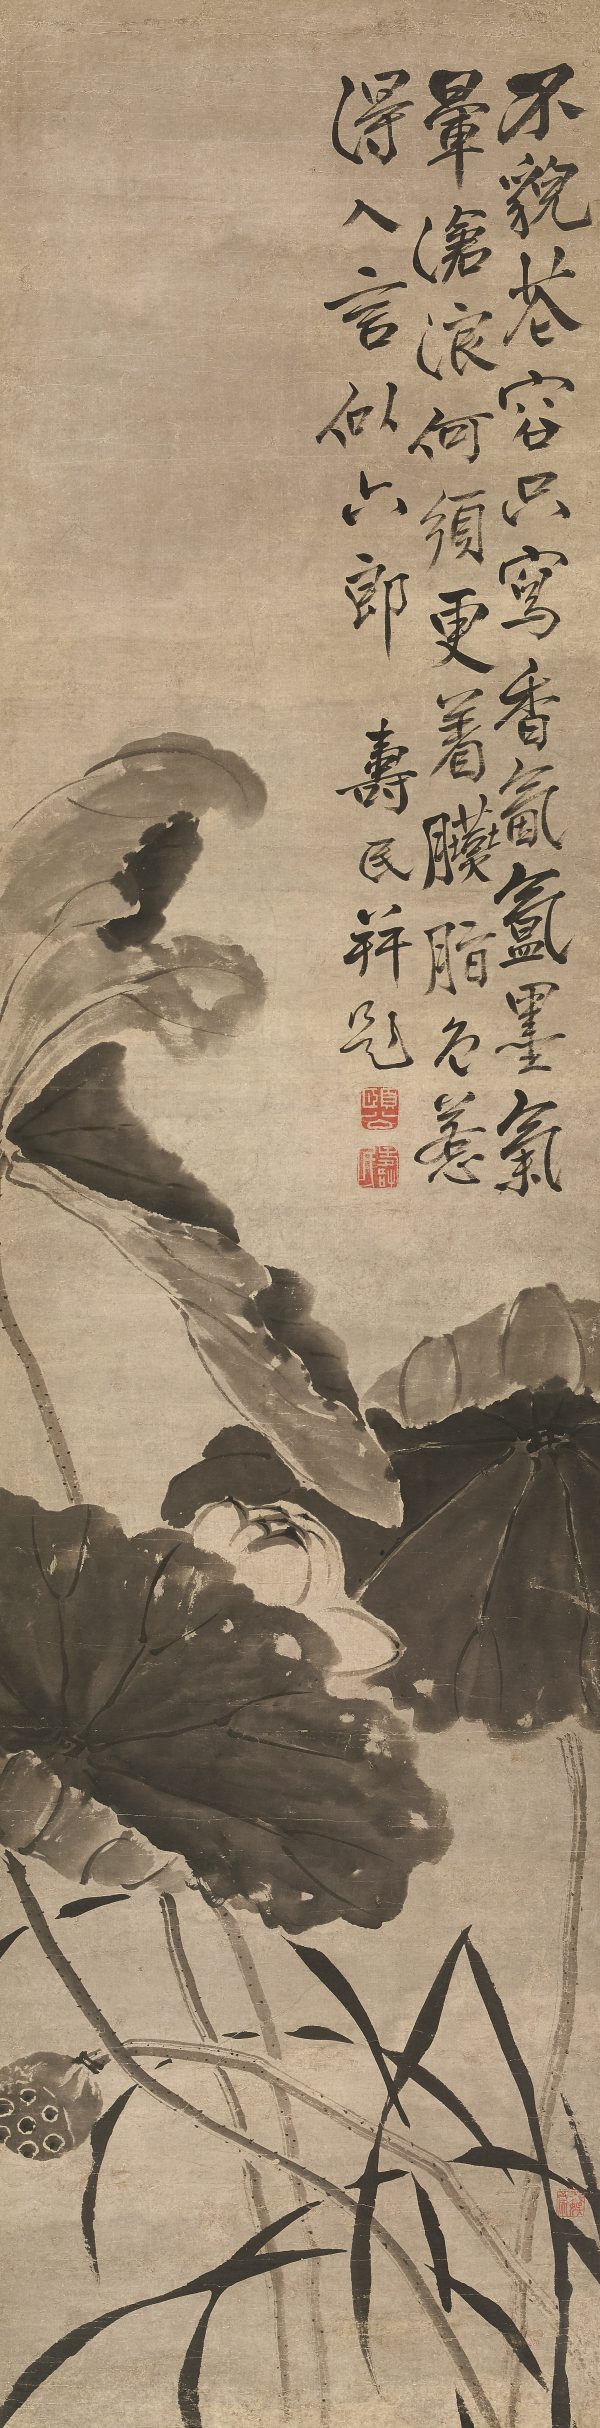 不貌花容只寫香氤氳墨氣
暈滄浪何須更着臙脂色惹
得人言似六郎
壽民并題
頤公